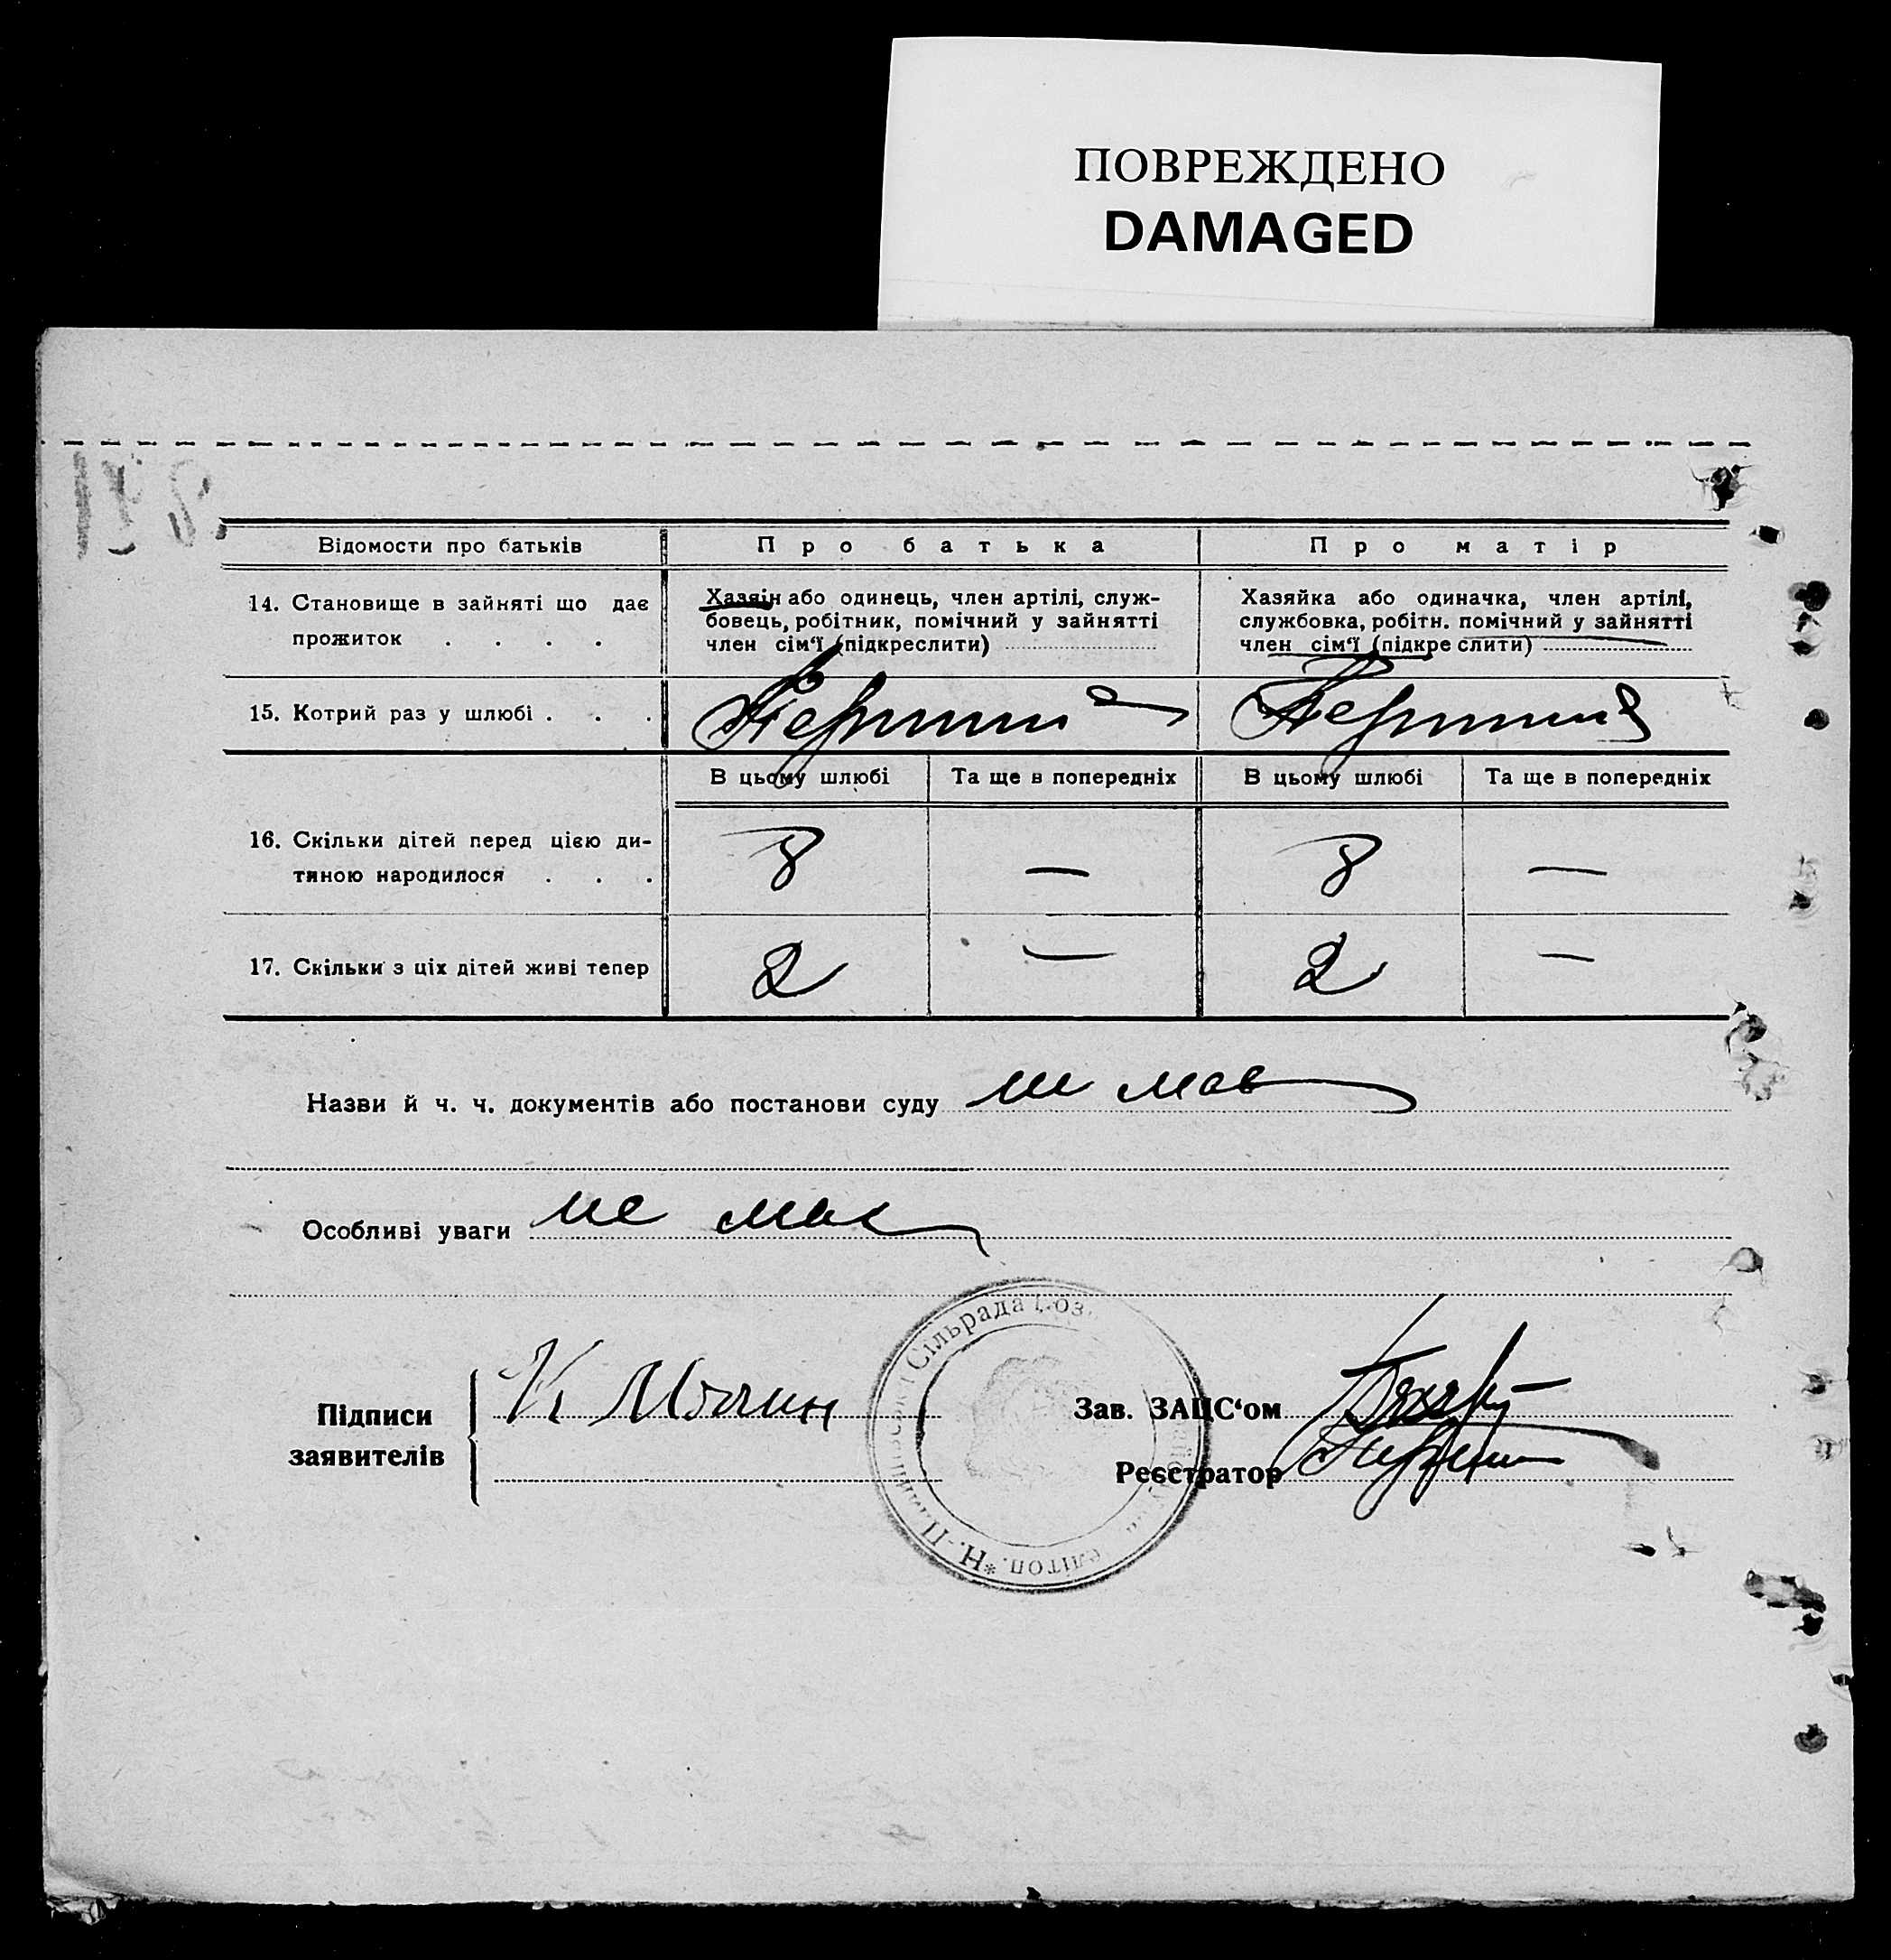 ПОВРЕЖДЕНО
DAMAGED
Відомости про батьків
Про батька
Про матір
14. Становище в зайняті що дає прожиток . . . .
Хазяїн або одинець, член артілі, служ-
бовець, робітник, помічний у зайнятті
член сім‘ї (підкреслити)
Хазяйка або одиначка, член артілі,
службовка, робітн. помічний у зайнятті
член сім‘ї (підкреслити)
15. Котрий раз у шлюбі . . .
В цьому шлюбі
Та ще в попередніх
В цьому шлюбі
Та ще в попередніх
16. Скільки дітей перед цією ди-
тиною народилося . . .
8 — 8 —
17. Скільки з ціх дітей живі тепер
2 — 2 —
Назви й ч. ч. документів або постанови суду не має
Особливі уваги не має
Підписи
заявителів
Зав. ЗАЦС‘ом
Реєстратор
Сільрада